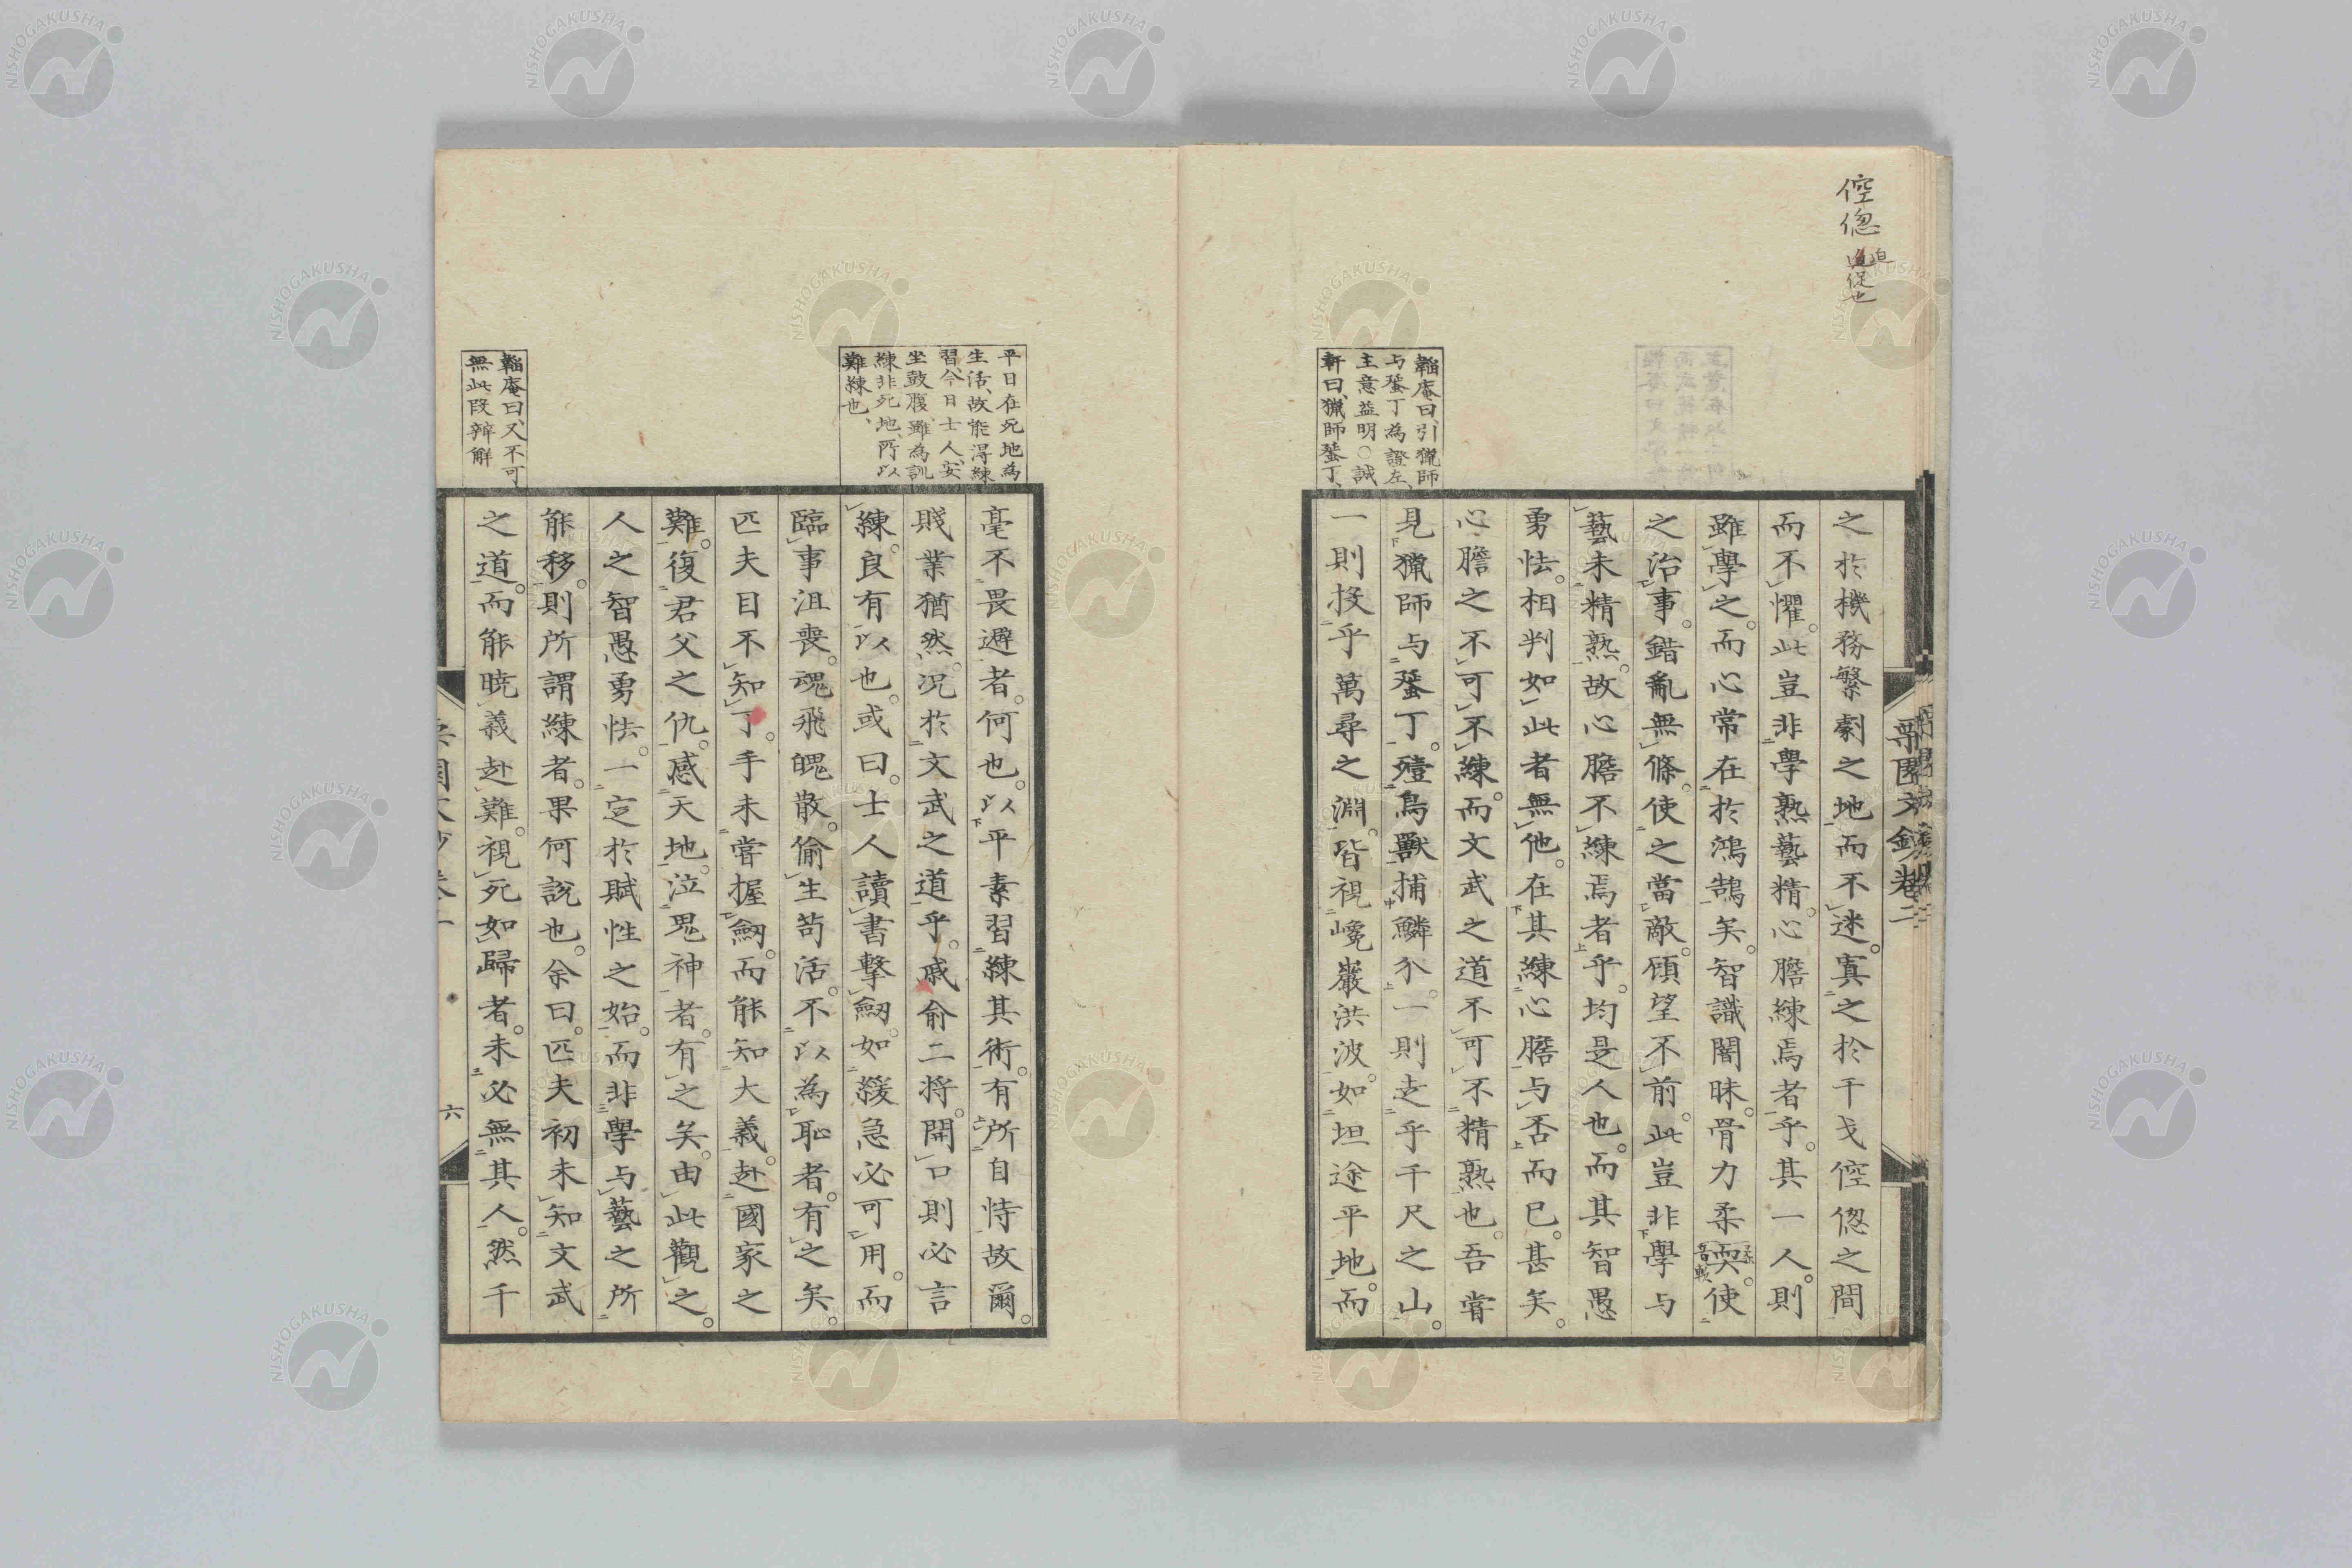 倥偬
迫
迫促也
之於機務繁劇之地而不迷寘之於干戈倥偬之間
而不懼此豈非學熟藝精心膽練焉者乎其一人則
雖學之而心常在於鴻鵠矣智識闇昧骨力柔耎使
之治事錯亂無條使之當敵頎望不前此豈非學与
藝未精熟故心膽不練焉者乎均是人也而其智愚
勇怯相判如此者無他在其練心膽与否而已甚矣
心膽之不可不練而文武之道不可不精熟也吾嘗
見獵師与蜑丁殪鳥獸捕鱗介一則走乎千尺之山
一則投乎萬尋之淵皆視巉巖洪波如坦途平地而
韜庵曰、引獵師
与蜑丁為證左、
主意益明○誠
軒曰、獵師蜑丁、
平日在死地為
生活、故能得練
習、今日士人、安
坐鼓腹、雖為訓
練非死地、所以
難練也、
毫不畏避者何也以平素習練其術有所自恃故爾
賤業猶然况於文武之道乎戚俞二将開口則必言
練良有以也或曰士人讀書擊劒如緩急必可用而
臨事沮喪魂飛魄散偷生苟活不以為恥者有之矣
匹夫目不知丁手未嘗握劒而能知大義赴國家之
難復君父之仇感天地泣鬼神者有之矣由此觀之
人之智愚勇怯一定於賦性之始而非學与藝之所
能移則所謂練者果何説也余曰匹夫初未知文武
之道而能暁義赴難視死如歸者未必無其人然千
韜庵曰、又不可
無此段辨解
六
NISHOGAKUSHA